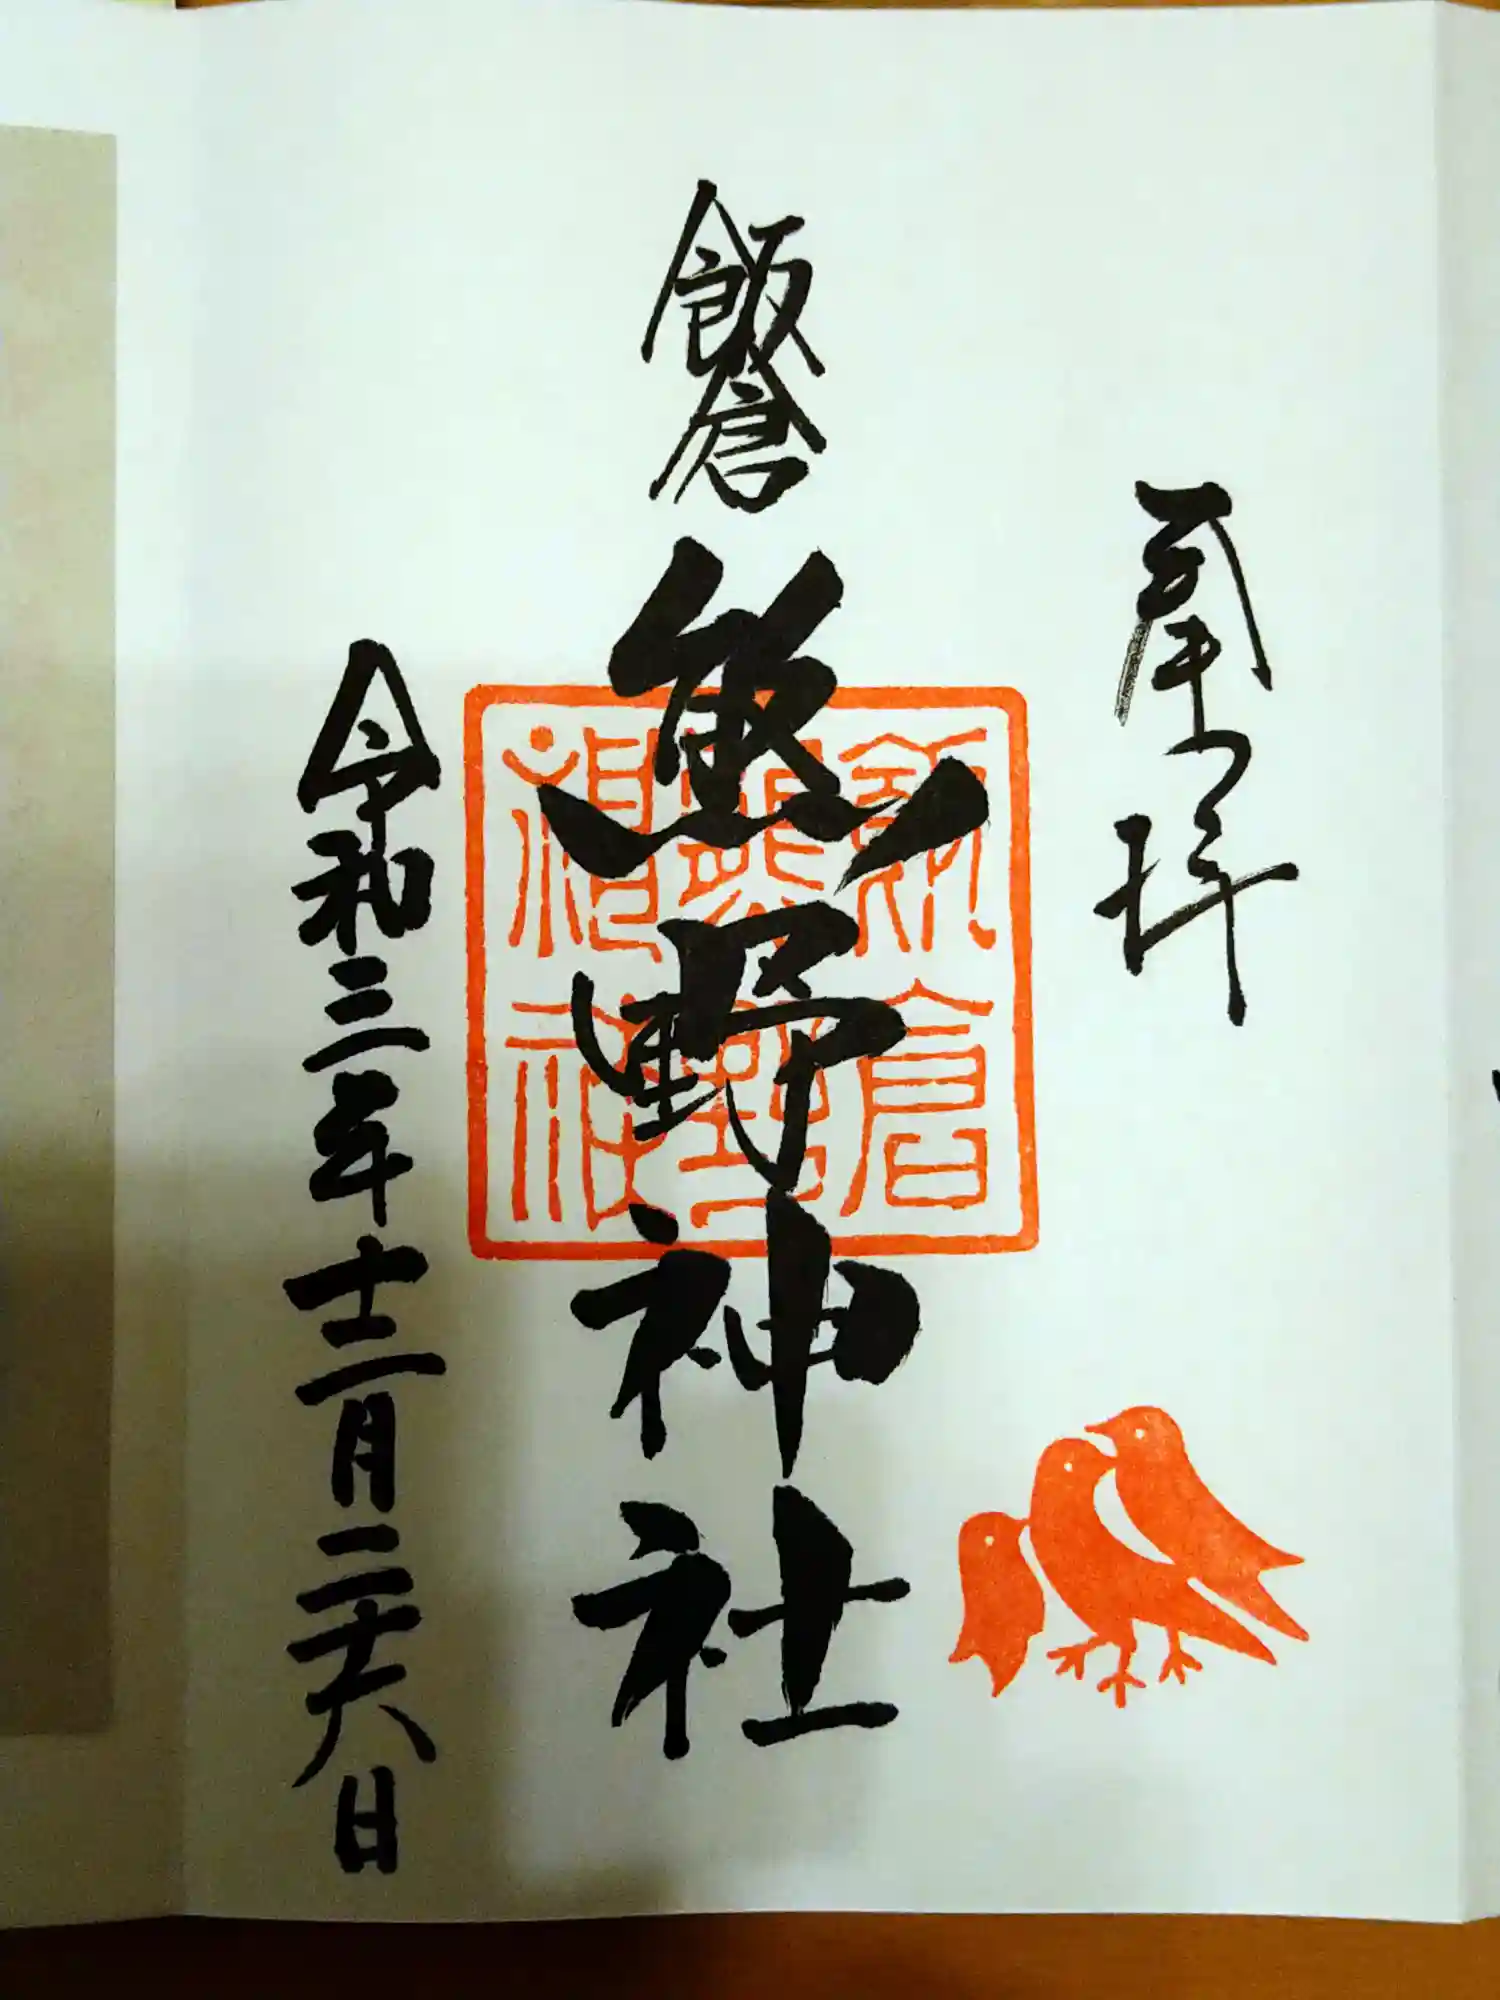 奉拝
飯倉
熊野神社
飯倉
熊野
神社
令和三年十二月二十六日